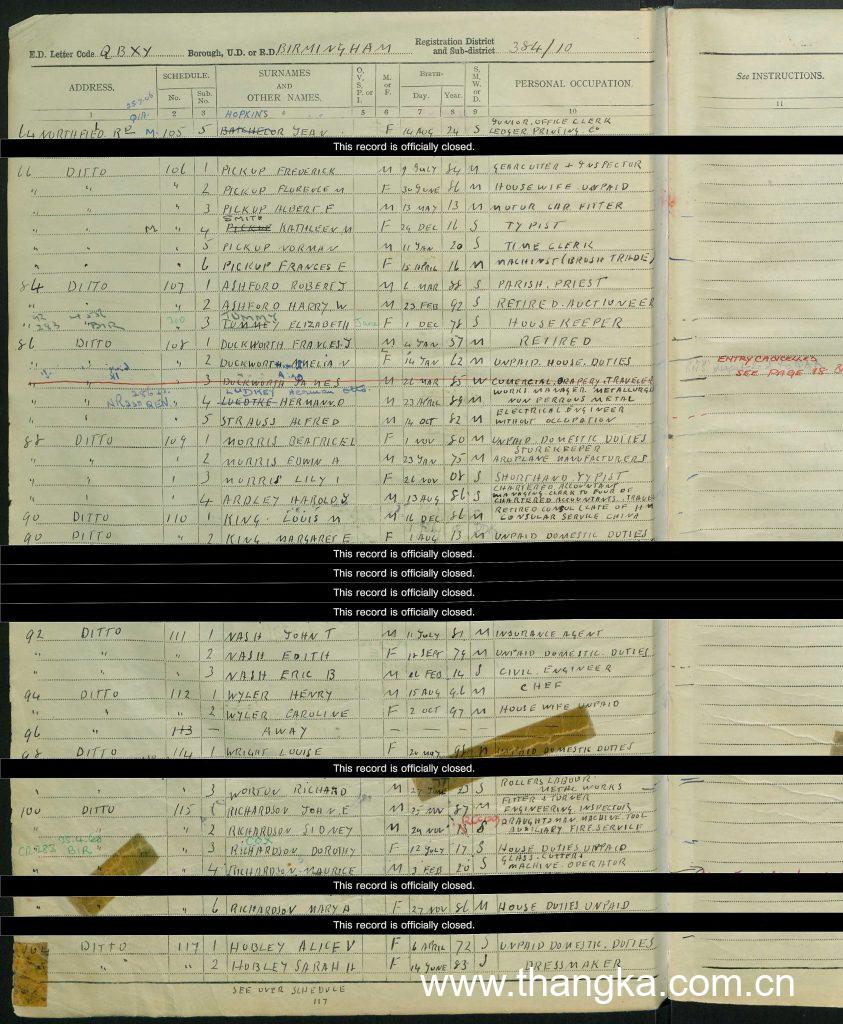 E.D. Letter Code QBXY Borough, U.D. or R.D. BIRMINGHAM Registration District and Sub-district 384/10
ADDRESS. SCHEDULE. No. Sub. No. SURNAMES AND OTHER NAMES. O, V, S, P, or I M. or F. Birth- Day. Year. S, M, W, or D. PERSONAL OCCUPATION. See INSTRUCTIONS.
1 2 3 4 5 6 7 8 9 10 11
HOPKINS
64 NORTHFIELD RD M 105 5 JEAN F 14 AUG 24 S JUNIOR OFFICE CLERK
LEDGER PRINTING CO
This record is officially closed.
66 DITTO 106 1 PICKUP FREDERICK M 9 JULY 84 M GEARCUTTER + INSPECTOR
" " " 2 PICKUP FLORENCE M F 30 JUNE 86 M HOUSEWIFE UNPAID
" " " 3 PICKUP ALBERT F M 13 MAY 13 M MOTOR CAR FITTER
SMITH
" " M " 4 PICKUP KATHLEEN M F 24 DEC 16 S TYPIST
" " " 5 PICKUP NORMAN M 11 JAN 20 S TIME CLERK
" " " 6 PICKUP FRANCES E F 15 APRIL 16 M MACHINIST (BRUSH TRADE)
84 DITTO 107 1 ASHFORD ROBERT J M 6 MAR 88 S PARISH PRIEST
" " " 2 ASHFORD HARRY W M 23 FEB 92 S RETIRED AUCTIONEER
TUMMY
" 293 BIR 3 TUMMEY ELIZABETH Jane F 1 DEC 78 S HOUSEKEEPER
86 DITTO 108 1 DUCKWORTH FRANCES J M 4 JAN 57 M RETIRED
" " 2 DUCKWORTH AMELIA V F 14 JAN 62 M UNPAID HOUSE DUTIES
ENTRY CANCELLED
" " " 3 DUCKWORTH JAMES M 26 MAR 85 W COMERCIAL DRAPERY TRAVELER
SEE PAGE 18
LUDKEY Herman Otto
" 4 LUEDTKE HERMANN O M 23 APRIL 89 M WORKS MANAGER METALLURGY
NON FERROUS METAL
" " " 5 STRAUSS ALFRED M 14 OCT 82 M ELECTRICAL ENGINEER
WITHOUT OCCUPATION
88 DITTO 109 1 MORRIS BEATRICE L F 1 NOV 80 M UNPAID DOMESTIC DUTIES
" " " 2 MORRIS EDWIN A M 23 JAN 75 M STOREKEEPER
AROPLANE MANUFACTURERS
" " " 3 MORRIS LILY I F 26 NOV 08 S SHORTHAND TYPIST
" " " 4 ARDLEY HAROLD J M 13 AUG 86 S CHARTERED ACCOUNTANT
MANAGING CLERK TO FOUR OF
CHARTERED ACCOUNTANTS
90 DITTO 110 1 KING LOUIS M M 16 DEC 86 M RETIRED CONSUL LATE OF H M
CONSULAR SERVICE CHINA
90 DITTO " 2 KING MARGARET E F 1 AUG 13 M UNPAID DOMESTIC DUTIES
This record is officially closed.
This record is officially closed.
This record is officially closed.
This record is officially closed.
92 DITTO 111 1 NASH JOHN T M 11 JULY 81 M INSURANCE AGENT
" " " 2 NASH EDITH F SEPT 79 M UNPAID DOMESTIC DUTIES
" " " 3 NASH ERIC B M FEB 14 S CIVIL ENGINEER
94 DITTO 112 1 WYLER HENRY M 15 AUG 96 M CHEF
" " " 2 WYLER CAROLINE F 2 OCT 97 M HOUSE WIFE UNPAID
96 " 113 — AWAY — — — —
98 DITTO 114 1 WRIGHT LOUISE F 20 MAY 98 M UNPAID DOMESTIC DUTIES
This record is officially closed.
" " " 3 WORTON RICHARD M 27 JUNE 23 S ROLLERS LABOUR
METAL WORKS
100 DITTO 115 1 RICHARDSON JOHN E M 25 NOV 87 M FITTER & TURNER
ENGINEERING INSPECTOR
" " " 2 RICHARDSON SIDNEY M 24 NOV 15 S DRAUGHTSMAN MACHINE TOOL
AUXILIARY FIRE SERVICE
COX
CR 283 BIR " 3 RICHARDSON DOROTHY F 12 JULY 17 S HOUSE DUTIES UNPAID
" " " 4 RICHARDSON MAURICE M 3 FEB 20 S GLASS CUTTERS
MACHINE OPERATOR
This record is officially closed.
" " " 6 RICHARDSON MARY A F 27 NOV 86 M HOUSE DUTIES UNPAID
This record is officially closed.
102 DITTO 117 1 HOBLEY ALICE V F 6 APRIL 72 S UNPAID DOMESTIC DUTIES
" " 2 HOBLEY SARAH H F 14 JUNE 83 S DRESSMAKER
SEE OVER SCHEDULE
117
www.thangka.com.cn